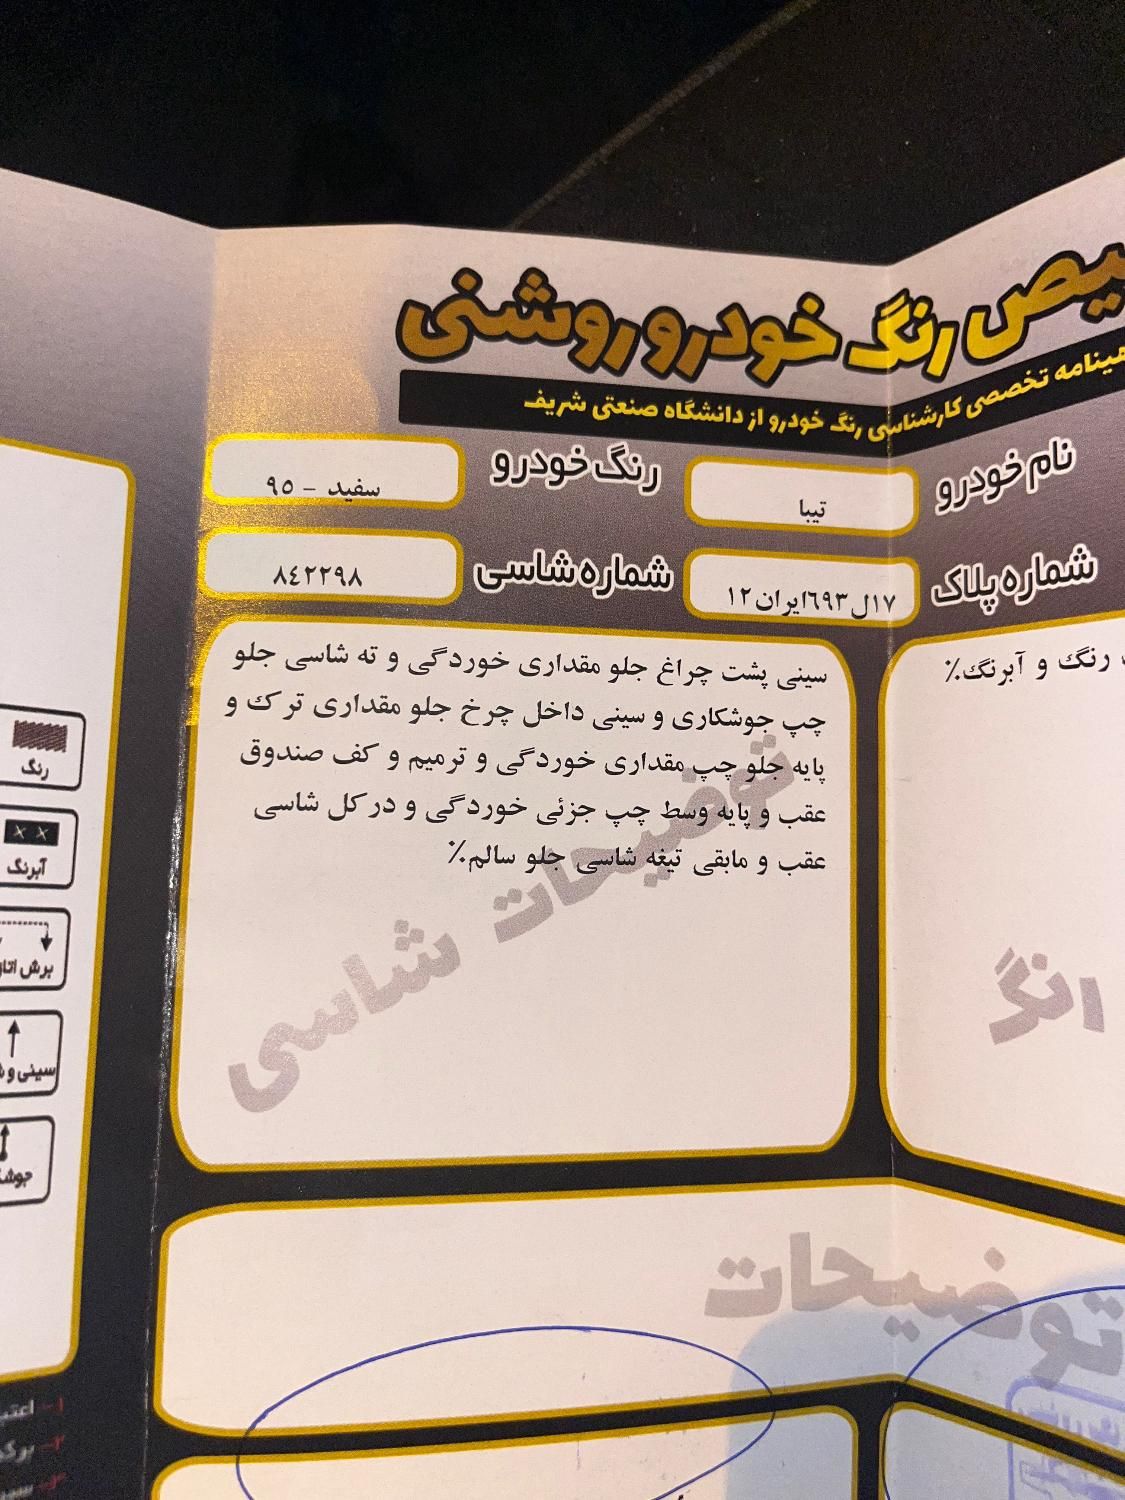 رنگ خودرو روشنی
تخصصی کارشناسی رنگ خودرو از دانشگاه صنعتی شریف
نام خودرو تیبا
رنگ خودرو سفید - ۹۵
شماره پلاک ۱۷ل۶۹۳ایران۱۲
شماره شاسی ۸۴۲۲۹۸
رنگ و آبرنگ٪
سینی پشت چراغ جلو مقداری خوردگی و ته شاسی جلو
چپ جوشکاری و سینی داخل چرخ جلو مقداری ترک و
پایه جلو چپ مقداری خوردگی و ترمیم و کف صندوق
عقب و پایه وسط چپ جزئی خوردگی و در کل شاسی
عقب و مابقی تیغه شاسی جلو سالم٪
توضیحات شاسی
رنگ
آبرنگ
برش
سینی و
توضیحات
۱-
۲-
۳-